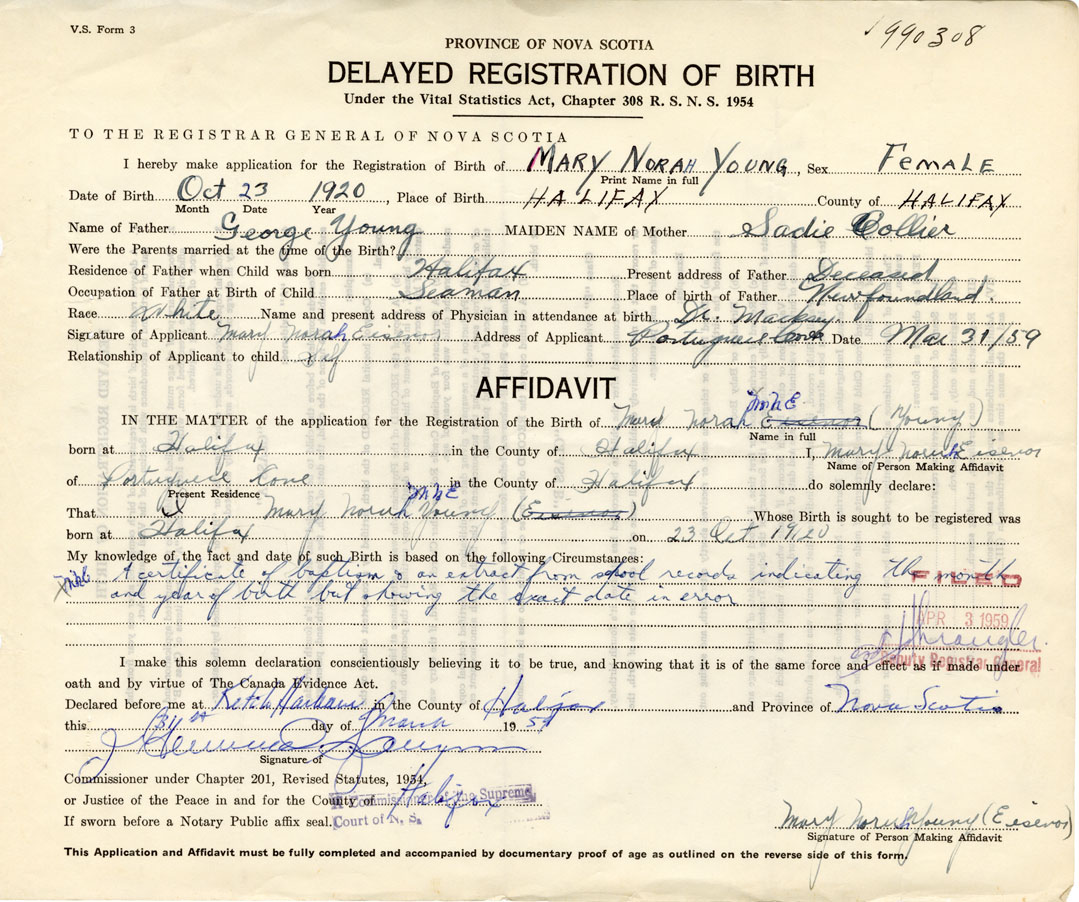 V.S. Form 3
990308
PROVINCE OF NOVA SCOTIA
DELAYED REGISTRATION OF BIRTH
Under the Vital Statistics Act, Chapter 308 R. S. N. S. 1954
TO THE REGISTRAR GENERAL OF NOVA SCOTIA
I hereby make application for the Registration of Birth of MARY NORAH YOUNG, Sex FEMALE
Print Name in full
Date of Birth Oct 23 1920, Place of Birth HALIFAX County of HALIFAX
Month Date Year
Name of Father George Young MAIDEN NAME of Mother Sadie Collier
Were the Parents married at the time of the Birth?
Residence of Father when Child was born Halifax Present address of Father Deceased
Occupation of Father at Birth of Child Seaman Place of birth of Father Newfoundland.
Race White Name and present address of Physician in attendance at birth Dr. Macksey.
Signature of Applicant Mary Norah Eisenor Address of Applicant Portuguese Cove Date Mar 31/59
Relationship of Applicant to child Self
AFFIDAVIT
MNE
IN THE MATTER of the application for the Registration of the Birth of Mary Norah Eisenor (Young)
Name in full
born at Halifax in the County of Halifax I, Mary Norah Eisenor
Name of Person Making Affidavit
of Portuguese Cove in the County of Halifax do solemnly declare:
Present Residence
MNE
That I Mary Norah Young (Eisenor) Whose Birth is sought to be registered was
born at Halifax on 23 Oct 1920
My knowledge of the fact and date of such Birth is based on the following Circumstances:
MNE A certificate of baptism & an extract from school records indicating the month
and year of birth but showing the exact date in error
FILED
APR 3 1959
Deputy Registrar General
I make this solemn declaration conscientiously believing it to be true, and knowing that it is of the same force and effect as if made under
oath and by virtue of The Canada Evidence Act.
Declared before me at Ketch Harbour in the County of Halifax and Province of Nova Scotia
this 31st day of March 1959
Signature of
Commissioner under Chapter 201, Revised Statutes, 1954,
or Justice of the Peace in and for the County of Halifax
A Commissioner of the Supreme
Court of N. S.
If sworn before a Notary Public affix seal.
Mary Norah Young (Eisenor)
Signature of Person Making Affidavit
This Application and Affidavit must be fully completed and accompanied by documentary proof of age as outlined on the reverse side of this form.